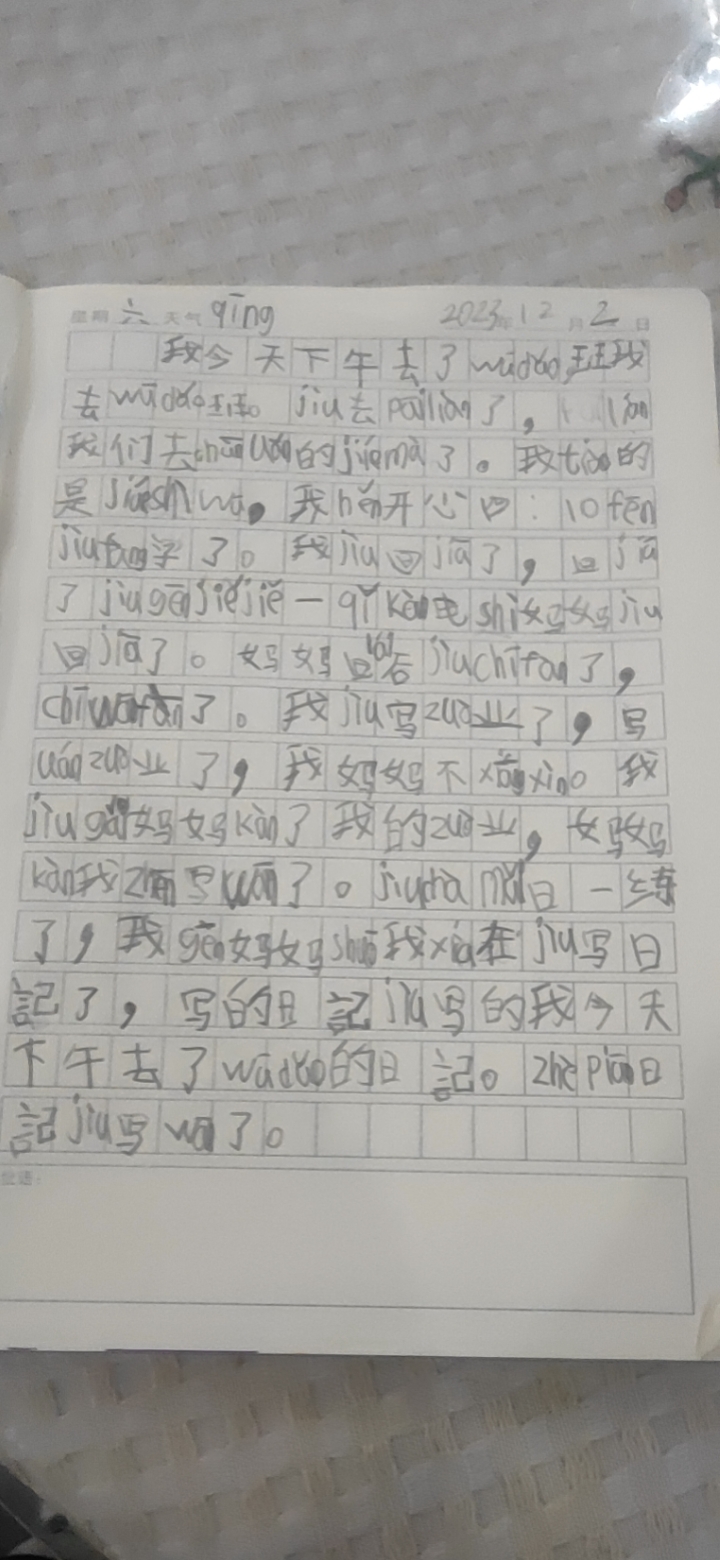 星期 六 天气 qīng 2023年12月2日
我今天下午去了wǔdǎo班我
去wǔdǎo班。jiu去pǎiliàn了，
我们去 的 了。我 的
是 ，我hěn开心 : 10 fēn
jiu 学了。我jiu回jiā了，回jiā
了jiu gēn jiějiě一qǐ kàn电shi妈妈jiu
回jiā了。妈妈回 后jiuchīfan了，
chī 了。我jiu写zuò业了，写
uán zuò业了，我妈妈不xiāngxin。我
jiu gěi妈妈kàn了我的zuò业，妈妈
kàn我zhēn写wán了。jiu 日一练
了，我gēn妈妈shuō我xiàn在jiu写日
記了，写的日記jiu写的我今天
下午去了wǔdǎo的日記。zhè piān日
記jiu写wán了。
批语：